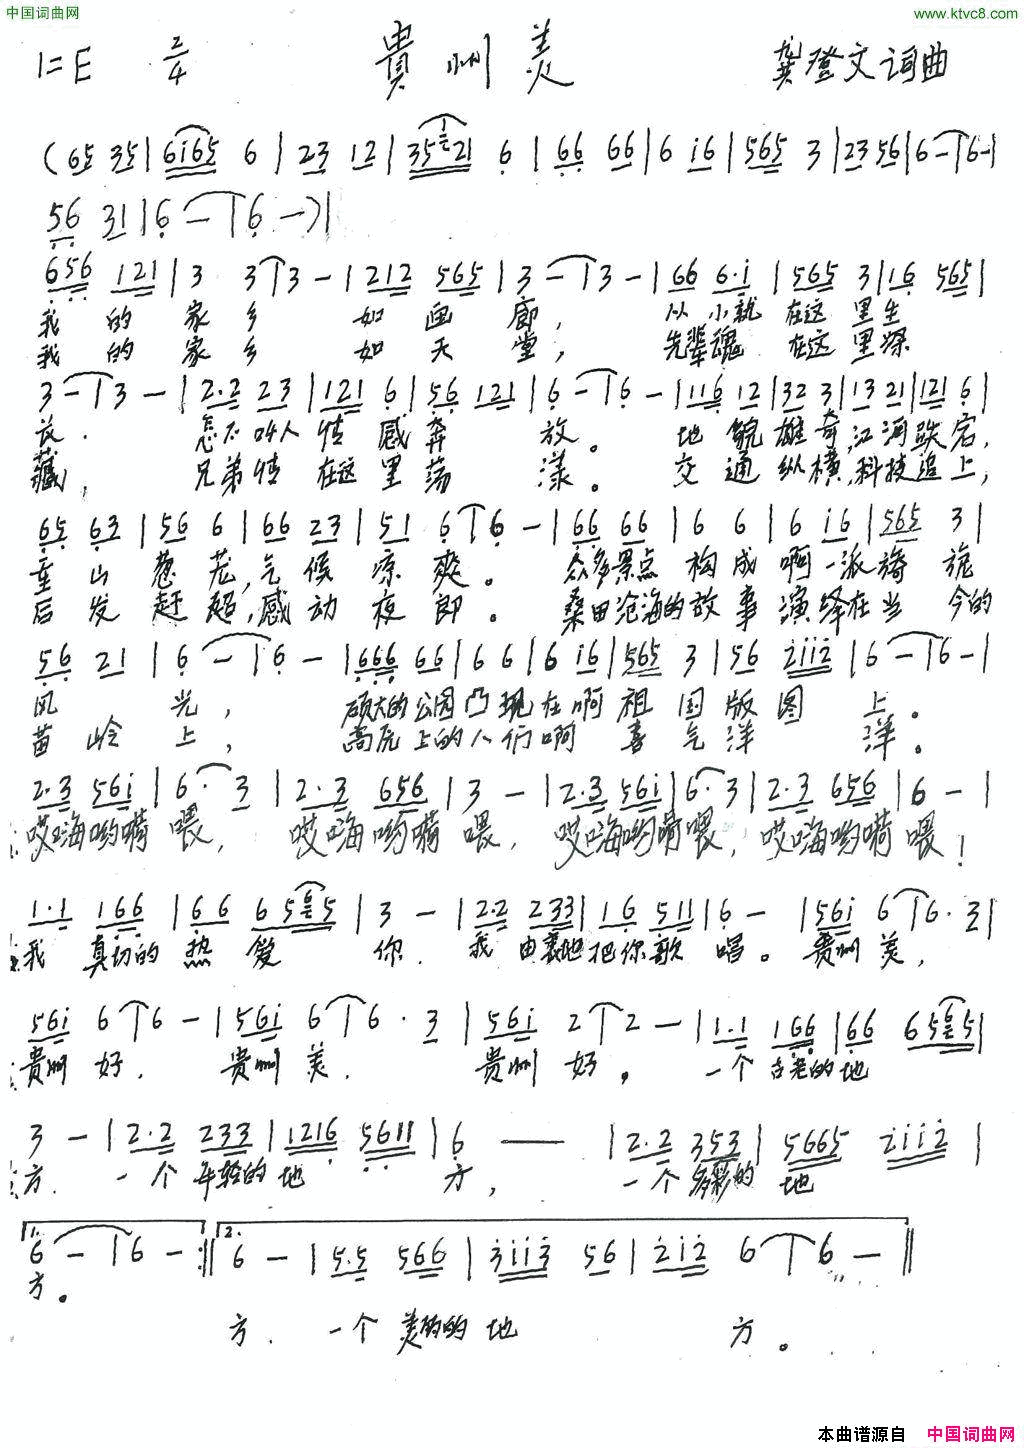 中国词曲网 www.ktvc8.com
1=E 2/4 貴州美 龚登文词曲
(65 35|6i65 6|23 12|35 1/2 21 6|66 66|6 i6|565 3|23 56|6-|6-|
56 31|6-|6-)|
656 121|3 3|3-|212 565|3-|3-|66 6·i|565 3|16 565|
我的家乡如画廊,从小就在这里生
我的家乡如天堂,先辈魂在这里深
3-|3-|2·2 23|121 6|56 121|6-|6-|116 12|32 3|13 21|121 6|
放.怎不叫人情感奔放。地貌雄奇,江河跌宕,
藏,兄弟情在这里荡漾。交通纵横,科技追上,
65 63|56 6|66 23|51 6|6-|66 66|6 6|6 i6|565 3|
重山葱茏,气候凉爽。众多景点构成啊一派旖旎
后发赶超,感动夜郎。桑田沧海的故事演绎在当今的
56 21|6-|6-|666 66|6 6|6 i6|565 3|56 2ii2|6-|6-|
风光,硕大的公园凸现在啊祖国版图上。
苗岭上,高原上的人们啊喜气洋洋。
2·3 56i|6·3|2·3 656|3-|2·3 56i|6·3|2·3 656|6-|
哎嗨哟嗬喂,哎嗨哟嗬喂,哎嗨哟嗬喂,哎嗨哟嗬喂!
1·1 166|66 65 6 5|3-|2·2 233|16 511|6-|56i 6|6·3|
我真切的热爱你.我由衷地把你歌唱。贵州美,
56i 6|6-|56i 6|6·3|56i 2|2-|1·1 166|66 65 6 5|
贵州好.贵州美.贵州好。一个古老的地
3-|2·2 233|1216 5611|6—|2·2 353|5665 2ii2|
方.一个年轻的地方,一个多彩的地
1. 6-|6-:||2. 6-|5·5 566|3ii3 56|2i2 6|6-||
方。
方.一个美丽的地方。
本曲谱源自 中国词曲网